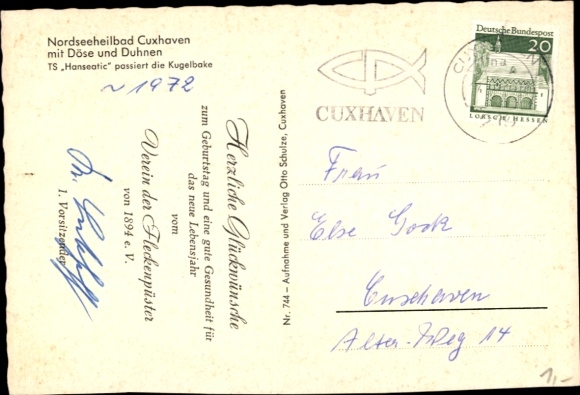 Nordseeheilbad Cuxhaven
mit Döse und Duhnen
TS „Hanseatic" passiert die Kugelbake
~ 1972
Herzliche Glückwünsche
zum Geburtstag und eine gute Gesundheit für
das neue Lebensjahr
vom
Verein der Fleckenpüster
von 1894 e. V.
1. Vorsitzender
Nr. 744 – Aufnahme und Verlag Otto Schulze, Cuxhaven
CUXHAVEN
Deutsche Bundespost
20
LORSCH/HESSEN
Frau
Else Gock
Cuxhaven
Alter-Weg 14
1,-